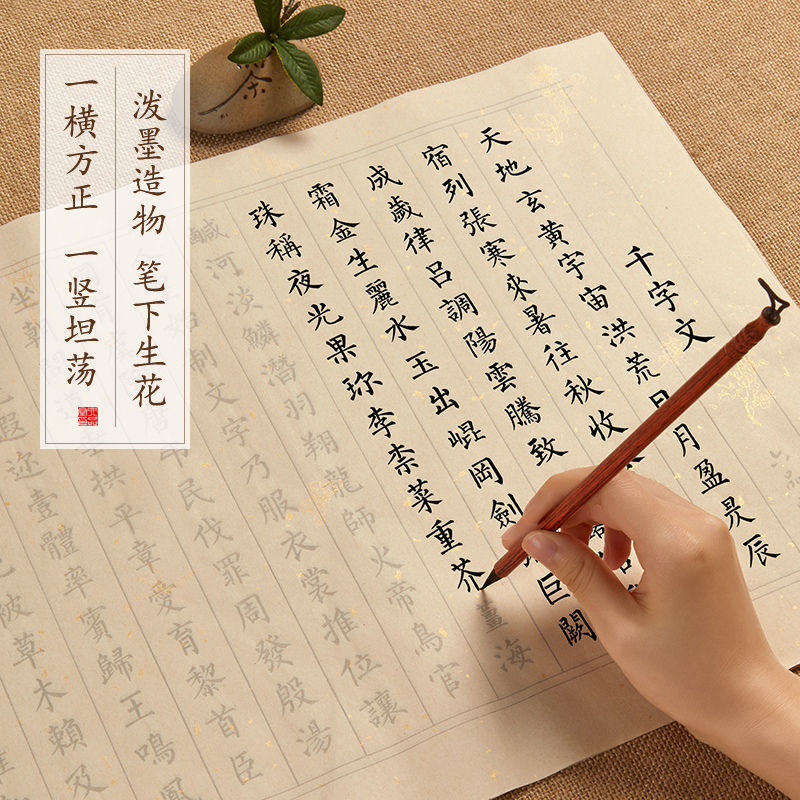 泼墨造物 笔下生花
一横方正 一竖坦荡
茶
千字文
天地玄黄宇宙洪荒日月盈昃辰
宿列張寒來暑往秋收
成歲律呂調陽雲騰致
霜金生麗水玉出崐岡劍巨闕
珠稱夜光果珎李柰菜重芥薑海
鹹河淡鱗潛羽翔龍師火帝鳥官
始制文字乃服衣裳推位讓
民伐罪周發殷湯
坐朝拱平章愛育黎首臣
遐迩壹體率賓歸王鳴鳳
被草木賴及